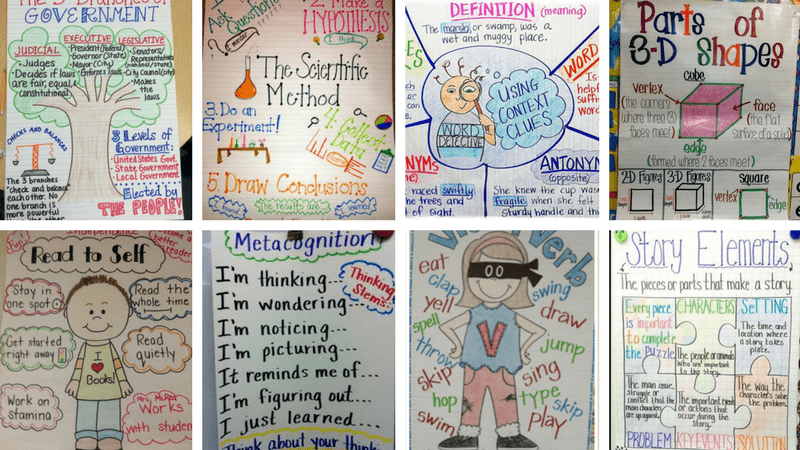 The 3 Branches of
GOVERNMENT
JUDICIAL
• Judges
• Decides if laws
are fair, equal,
constitutional
EXECUTIVE
• President (Federal)
• Governor (State)
• Mayor (City)
• Enforce laws
LEGISLATIVE
• Senators/
Representatives
• City Council (City)
• Makes
the
laws
CHECKS AND BALANCES
The 3 branches
"check and balance"
each other. No
one branch is
more powerful
3 Levels of
Government:
• United States Govt.
• State Government
• Local Government
Elected by
THE PEOPLE!
Ask
Questions
2. Make a
HYPOTHESIS
I think...
I wonder
The Scientific
Method
3. Do an
Experiment!
4. Collect
Data
5. Draw Conclusions
The results are
I learned
DEFINITION (meaning)
The marsh, or swamp, was a
wet and muggy place.
WORD
Is
help
suff
word
USING
CONTEXT
CLUES
WORD
DETECTIVE
NYMS
raced swiftly
he trees and
of sight.
ANTONYM
(opposite)
She knew the cup was
fragile when she felt
Sturdy handle and thi
Parts of
3-D Shapes
cube
vertex
(the corners
where three (3)
faces meet)
face
(the flat
surface of a solid)
edge
(formed where 2 faces meet)
2D Figures
3D Figures
square
vertex
edge
Fun!
Independence
Become a
better
reader
Read to Self
Stay in
one spot
Read the
whole time
Get started
right away
Read
quietly
I
Books!
Work on
stamina
Mrs. McRed
Works
with studen
Metacognition
I'm thinking...
Thinking
Stems:
I'm wondering...
I'm noticing...
I'm picturing...
It reminds me of...
I'm figuring out...
I just learned....
Think about your think
Verb
eat
clap
yell
spell
throw
skip
hop
swim
V
swing
draw
jump
sing
type
skip
play
Story Elements
The pieces or parts that make a story.
Every piece
is important
to complete
the puzzle.
CHARACTERS
The people or animals
who are important
to the story.
SETTING
The time and
location where
a story takes
place.
The main issue,
struggle or
conflict that the
main characters
are up against.
PROBLEM
The important events
or actions that
occur during the
story.
KEY EVENTS
The way the
characters solve
the problem.
SOLUTION